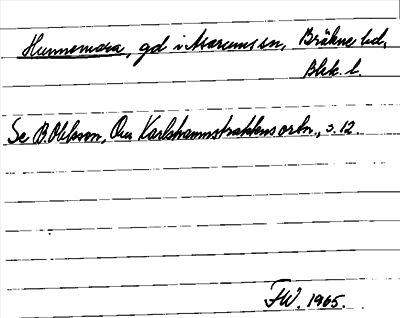 Hunnemara, gd i Asarums sn, Bräkne hd,
Blek. l.
Se B. Ohlsson, Om Karlshamnstraktens ortn., s. 12.
FW. 1965.